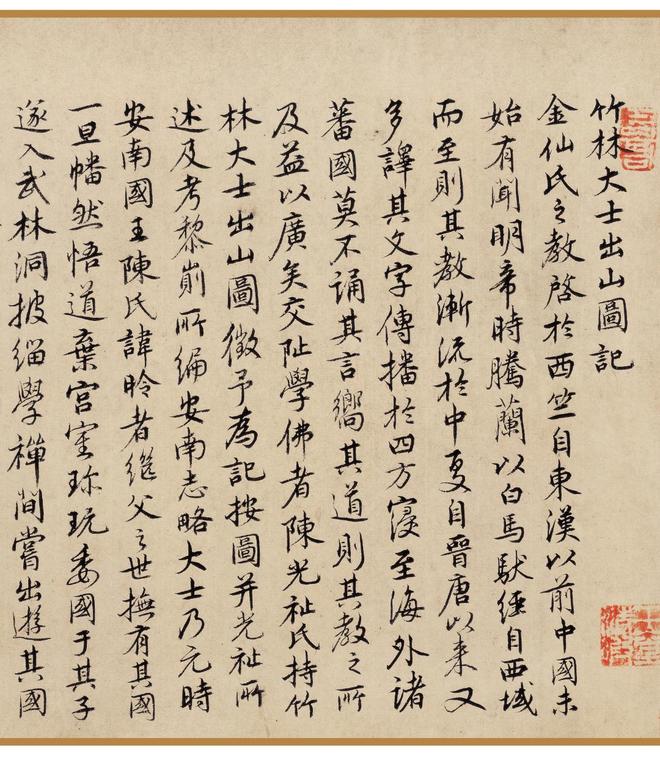 竹林大士出山圖記
金仙氏之教啓於西竺自東漢以前中國未
始有聞明帝時騰蘭以白馬馱經自西域
而至則其教漸流於中夏自晉唐以來又
多譯其文字傳播於四方寖至海外諸
蕃國莫不誦其言嚮其道則其教之所
及益以廣矣交阯學佛者陳光祉氏持竹
林大士出山圖徵予為記按圖并光祉所
述及考黎崱所編安南志略大士乃元時
安南國王陳氏諱昤者繼父之世撫有其國
一旦幡然悟道棄宮室珎玩委國于其子
遂入武林洞披緇學禪間嘗出遊其國